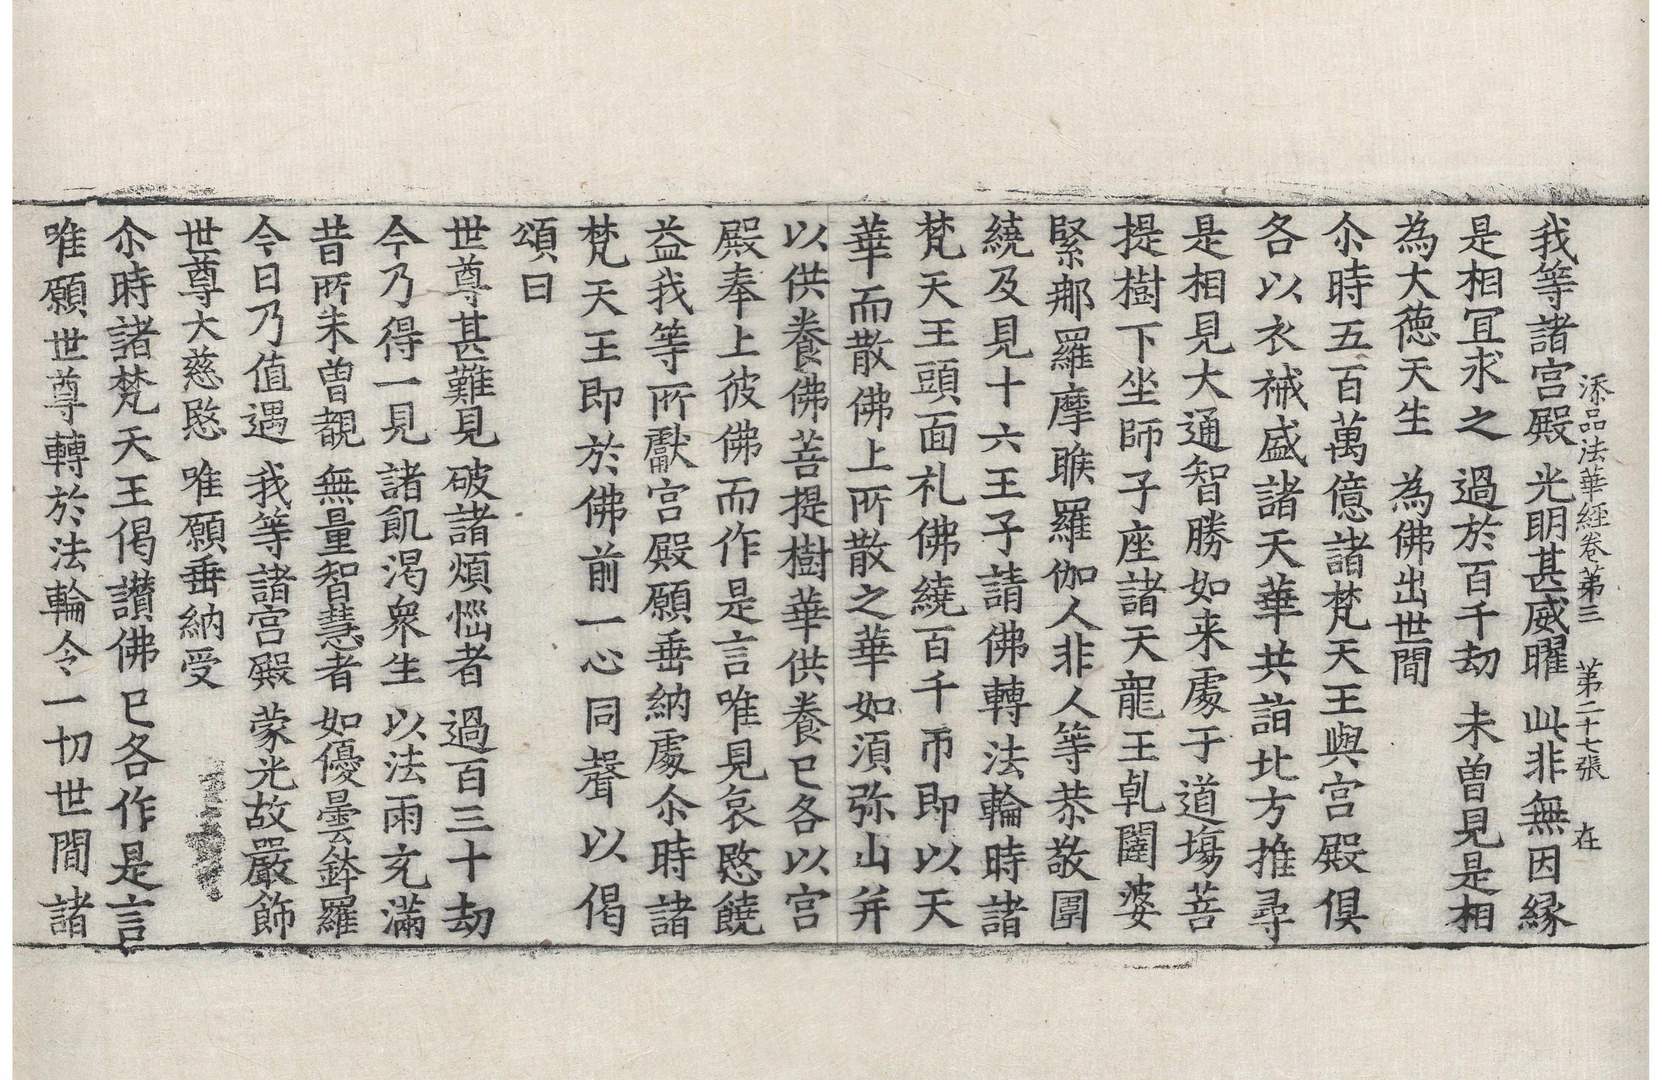 添品法華經卷第三　第二十七張　在
我等諸宮殿　光明甚威曜　此非無因緣
是相冝求之　過於百千劫　未曽見是相
為大德天生　為佛出世間
尒時五百萬億諸梵天王與宮殿俱
各以衣裓盛諸天華共詣北方推尋
是相見大通智勝如来處于道場菩
提樹下坐師子座諸天龍王乹闥婆
緊那羅摩睺羅伽人非人等恭敬圍
繞及見十六王子請佛轉法輪時諸
梵天王頭面礼佛繞百千帀即以天
華而散佛上所散之華如湏弥山并
以供養佛菩提樹華供養已各以宮
殿奉上彼佛而作是言唯見哀愍饒
益我等所獻宮殿願垂納處尒時諸
梵天王即於佛前一心同聲以偈
頌曰
世尊甚難見　破諸煩惱者　過百三十劫
今乃得一見　諸飢渴衆生　以法雨充滿
昔所未曽覩　無量智慧者　如優曇鉢羅
今日乃值遇　我等諸宮殿　蒙光故嚴飾
世尊大慈愍　唯願垂納受
尒時諸梵天王偈讃佛已各作是言
唯願世尊轉於法輪令一切世間諸